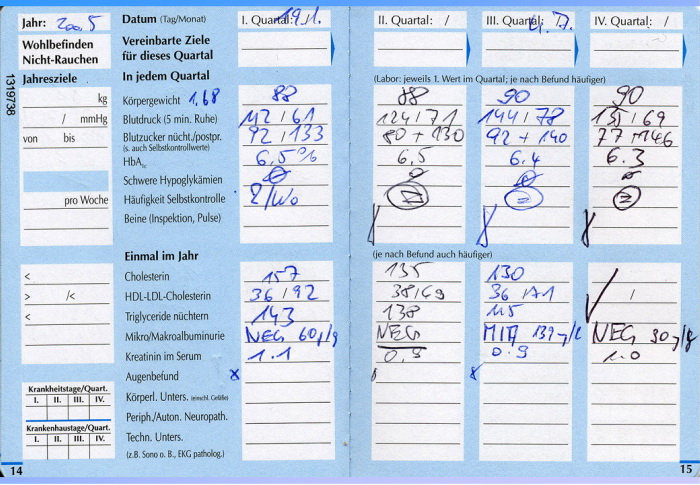 Jahr: 2005 Datum (Tag/Monat) I. Quartal: 19.1. II. Quartal: / III. Quartal: 4.7. IV. Quartal: /
Wohlbefinden
Nicht-Rauchen
Vereinbarte Ziele
für dieses Quartal
Jahresziele In jedem Quartal (Labor: jeweils 1. Wert im Quartal; je nach Befund häufiger)
kg Körpergewicht 1,68 88 88 90 90
/ mmHg Blutdruck (5 min. Ruhe) 112/61 124/71 144/78 /69
von bis Blutzucker nücht./postpr. 92/133 80 + 130 92 + 140 77 + 146
(s. auch Selbstkontrollwerte)
HbA1c 6,5% 6,5 6.4 6.3
Schwere Hypoglykämien ø ø ø ø
pro Woche Häufigkeit Selbstkontrolle 2/Wo 2 2 2
Beine (Inspektion, Pulse)
Einmal im Jahr (je nach Befund auch häufiger)
< Cholesterin 157 135 130
> /< HDL-LDL-Cholesterin 36/92 38/69 36/71 /
< Triglyceride nüchtern 143 138 115
Mikro/Makroalbuminurie NEG 60 NEG MIA 139 NEG 30
Kreatinin im Serum 1.1 0.9 0.9 1.0
Augenbefund x
Krankheitstage/Quart.
I. II. III. IV.
Körperl. Unters. (einschl. Gefäße)
Periph./Auton. Neuropath.
Krankenhaustage/Quart.
I. II. III. IV.
Techn. Unters.
(z.B. Sono o. B., EKG patholog.)
14 15
1319738